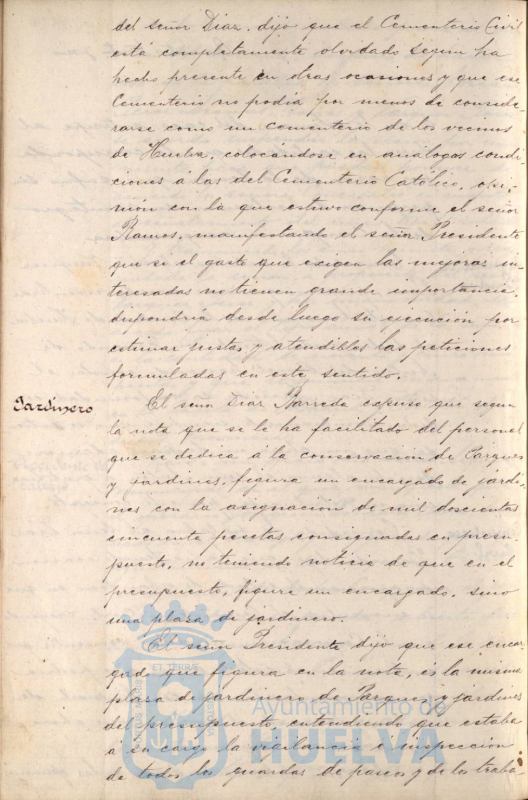 del señor Diaz, dijo que el Cementerio Civil
está completamente olvidado segun ha
hecho presente en otras ocasiones y que ese
Cementerio no podia por menos de conside-
rarse como un cementerio de los vecinos
de Huelva, colocándose en análogas condi-
ciones á las del Cementerio Católico, opi-
nión con la que estuvo conforme el señor
Ramos, manifestando el señor Presidente
que si el gasto que exigen las mejoras in-
teresadas no tienen grande importancia,
dispondría desde luego su ejecución por
estimar justas y atendibles las peticiones
formuladas en este sentido.
Jardinero
El señor Diaz Barreda expuso que segun
la nota que se le ha facilitado del personal
que se dedica á la conservación de Parques
y jardines, figura un encargado de jardi-
nes con la asignación de mil doscientas
cincuenta pesetas consignadas en presu-
puesto, no teniendo noticia de que en el
presupuesto, figure un encargado, sino
una plaza de jardinero.
El señor Presidente dijo que ese encar-
gado que figura en la nota, es la misma
plaza de jardinero de Parques y jardines
del presupuesto, entendiendo que estaba
á su cargo la vigilancia é inspección
de todos los guardas de paseos y de los traba
Ayuntamiento de
HUELVA